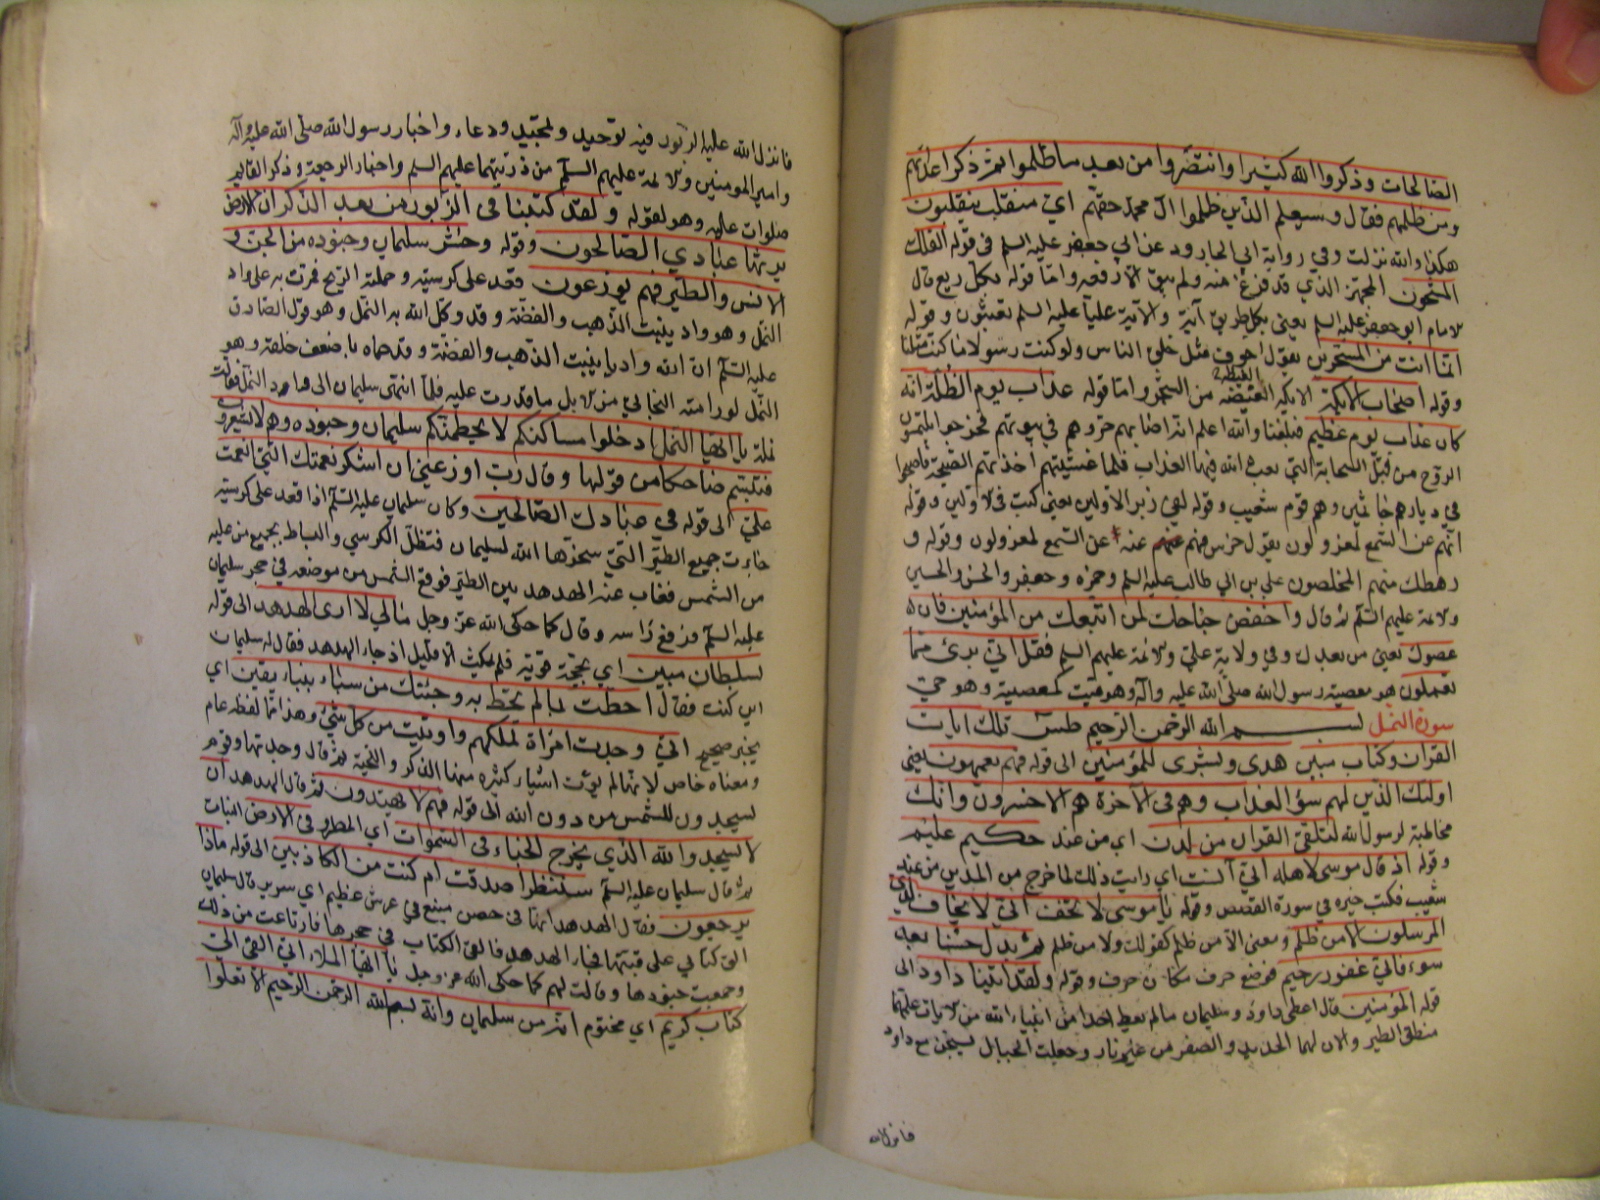 الصالحات وذكروا الله كثيرا وانتصروا من بعد ما ظلموا ثم ذكر اعدائهم
ومن ظلمهم فقال وسيعلم الذين ظلموا آل محمد حقهم اي منقلب ينقلبون
هكذا والله نزلت وفي رواية ابي الجارود عن ابي جعفر عليه السلم في قوله الفلك
المشحون المجهز الذي قد فرغ منه ولم يبق الا دفعه واما قوله بكل ريع قال
الامام ابو جعفر عليه السلم يعني بكل طريق آية والآية عليا عليه السلم تعبثون وقوله
انما انت من المسحرين يقول اجوف مثل خلق الناس ولو كنت رسولا ما كنت مثلنا
وقوله اصحاب الايكة الايكه الغيضه من الشجر واما قوله عذاب يوم الظلة انه
كان عذاب يوم عظيم فبلغنا والله اعلم انه اصابهم حر وهم في بيوتهم فخرجوا يلتمسون
الروح من قبل السحابة التي بعث الله فيها العذاب فلما غشيتهم اخذتهم الصيحة فاصبحوا
في ديارهم جاثمين وهم قوم شعيب وقوله لفي زبر الاولين يعني كتب الاولين وقوله
انهم عن السمع لمعزولون يقول خرس فهم عنه عن السمع لمعزولون وقوله و
رهطك منهم المخلصون علي بن ابي طالب عليه السلم وحمزه وجعفر والحسن والحسين
والائمة عليهم السلم ثم قال واخفض جناحك لمن اتبعك من المؤمنين فان
عصوك يعني من بعدك وفي ولاية علي والائمة عليهم السلم فقل اني بريء مما
تعملون هو معصية رسول الله صلى الله عليه وآله وهو ميت كمعصيته وهو حي
سورة النمل بسم الله الرحمن الرحيم طس تلك ايات
القران وكتاب مبين هدى وبشرى للمؤمنين الى قوله فهم يعمهون يعني
اولئك الذين لهم سؤ العذاب وهم في الآخرة هم الاخسرون وانك
مخاطبة لرسول الله لتلقى القران من لدن اي من عند حكيم عليم
وقوله اذ قال موسى لاهله اني آنست اي رايت ذلك لما خرج من المدين من عند
شعيب فكتب خبره في سورة القصص وقوله يا موسى لا تخف اني لا يخاف لدي
المرسلون الا من ظلم ومعنى الا من ظلم كقولك ولا من ظلم ثم بدل حسنا بعد
سوء فاني غفور رحيم فوضع حرف مكان حرف وقوله ولقد اتينا داود الى
قوله المؤمنين قال اعطى داود وسليمان ما لم يعط احدا من انبياء الله من الايات علمهما
منطق الطير والان لهما الحديد والصفر من غير نار وجعلت الجبال يسبحن مع داود
فانزل الله
فانزل الله عليه الزبور فيه توحيد وتمجيد ودعاء واخبار رسول الله صلى الله عليه وآله
وامير المومنين والائمة عليهم السلم من ذريتهما عليهم السلم واخبار الرجعة وذكر القايم
صلوات عليه وهو لقوله ولقد كتبنا في الزبور من بعد الذكر ان الارض
يرثها عبادي الصالحون وقوله وحشر سليمان وجنوده من الجن و
الانس والطير فهم يوزعون قعد على كرسيه وحملته الريح فمرت به على واد
النمل وهو واد ينبت الذهب والفضة وقد وكل الله به النمل وهو قول الصادق
عليه السلم ان لله واديا ينبت الذهب والفضة وقد حماه باضعف خلقه وهو
النمل لو رامته البخاتي من الابل ما قدرت عليه فلما انتهى سليمان الى واد النمل فقالت
نملة يا ايها النمل ادخلوا مساكنكم لا يحطمنكم سليمان وجنوده وهم لا يشعرون
فتبسم ضاحكا من قولها وقال رب اوزعني ان اشكر نعمتك التي انعمت
علي الى قوله في عبادك الصالحين وكان سليمان عليه السلم اذا قعد على كرسيه
جاءت جميع الطير التي سخرها الله لسليمان فتظل الكرسي والبساط بجميع من عليه
من الشمس فغاب عنه الهدهد بين الطير فوقع الشمس من موضعه في حجر سليمان
عليه السلم فرفع راسه وقال كما حكى الله عز وجل مالي لا ارى الهدهد الى قوله
بسلطان مبين اي بحجة قوية فلم يمكث الا قليل اذ جاء الهدهد فقال له سليمان
اين كنت فقال احطت بما لم تحط به وجئتك من سباء بنباء يقين اي
بخبر صحيح اني وجدت امراة تملكهم واوتيت من كل شيء وهذا مما لفظه عام
ومعناه خاص لانها لم يوت اشياء كثيره منها الذكر واللحية ثم قال وجدتها وقوم
يسجدون للشمس من دون الله الى قوله فهم لا يهتدون ثم قال الهدهد ان
لا يسجدوا لله الذي يخرج الخباء في السموات اي المطر وفي الارض النبات
ثم قال سليمان عليه السلم سننظر اصدقت ام كنت من الكاذبين الى قوله ماذا
يرجعون فقال الهدهد انها في حصن منيع في عرش عظيم اي سرير قال سليمان
الق كتابي على قبتها فجاء الهدهد فالقى الكتاب في حجرها فارتاعت من ذلك
وجمعت جنودها وقالت لهم كما حكى الله عز وجل يا ايها الملاء اني القي الي
كتاب كريم اي مختوم انه من سليمان وانه بسم الله الرحمن الرحيم الا تعلوا